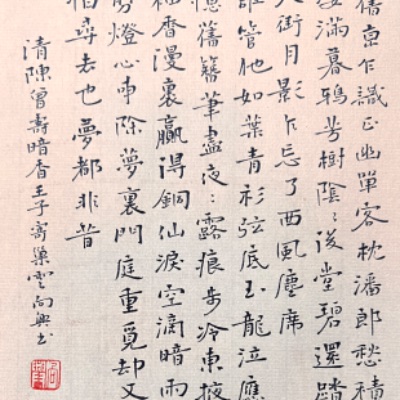 舊京乍識正幽單客枕潘郎愁積
滿暮鴉芳樹陰〻後堂碧還踏
天街月影乍忘了西風塵席
誰管他如葉青衫弦底玉龍泣應
憶舊簪筆盡夜〻露痕步冷東掖
袖香漫裹贏得銅仙淚空滴暗雨
剪燈心事除夢裏門庭重覓却又
怕尋去也夢都非昔
清陳曾壽暗香壬子寄巢雲向興書